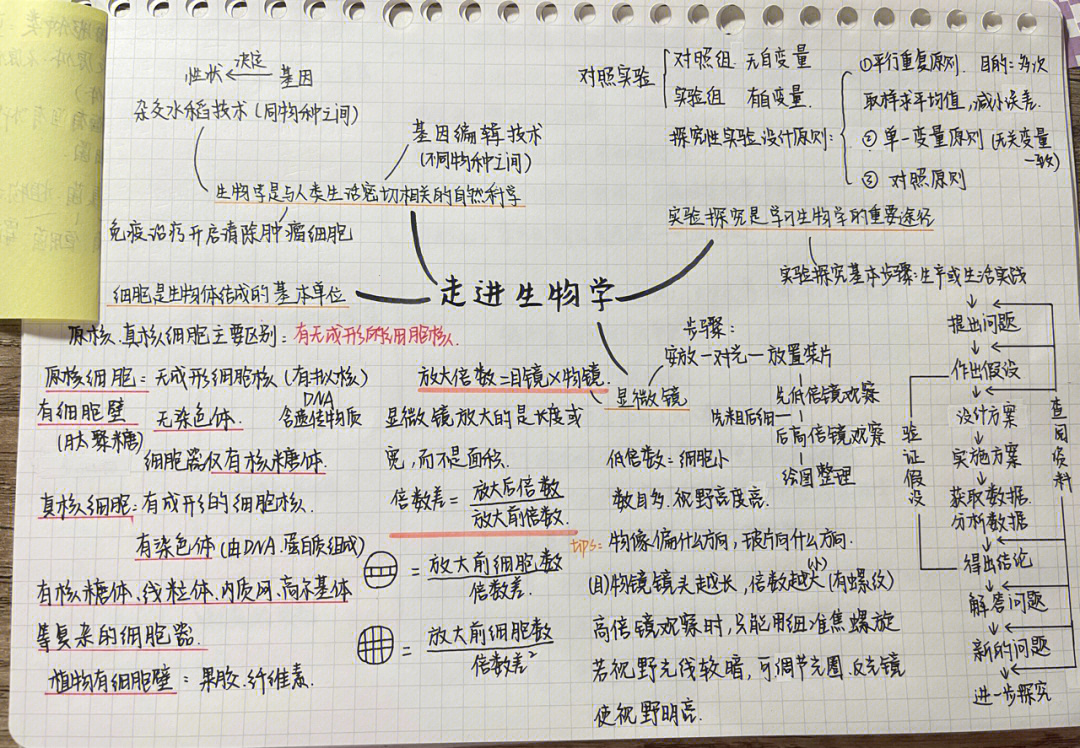 性状 ← 决定 基因
杂交水稻技术(同物种之间)
基因编辑技术
(不同物种之间)
生物学是与人类生活密切相关的自然科学
免疫治疗开启清除肿瘤细胞
对照实验
对照组 无自变量
实验组 有自变量.
探究性实验设计原则:
①平行重复原则. 目的:多次
取样求平均值,减小误差.
②单一变量原则(无关变量
一致)
③ 对照原则
实验探究是学习生物学的重要途径
实验探究基本步骤:生产或生活实践
提出问题
作出假设
设计方案
实施方案
获取数据
分析数据
得出结论
解答问题
新的问题
进一步探究
验证假设
查阅资料
走进生物学
细胞是生物体结成的基本单位
原核、真核细胞主要区别:有无成形的细胞核.
原核细胞:无成形细胞核(有拟核)
DNA
有细胞壁 无染色体. 含遗传物质
(肽聚糖)
细胞器仅有核糖体.
真核细胞:有成形的细胞核.
有染色体(由DNA.蛋白质组成)
有核糖体、线粒体、内质网、高尔基体
等复杂的细胞器.
植物有细胞壁:果胶.纤维素.
放大倍数=目镜×物镜.
显微镜放大的是长度或
宽,而不是面积.
倍数差=放大后倍数
放大前倍数.
=放大前细胞数
倍数差.
=放大前细胞数
倍数差²
显微镜
步骤:
安放一对光一放置装片
先低倍镜观察
先粗后细
后高倍镜观察
绘图整理
低倍数:细胞小
数目多.视野亮度亮.
tips:物像偏什么方向,玻片向什么方向.
(小)
(目)物镜镜头越长,倍数越大(有螺纹)
高倍镜观察时,只能用细准焦螺旋
若视野光线较暗,可调节光圈.反光镜
使视野明亮.